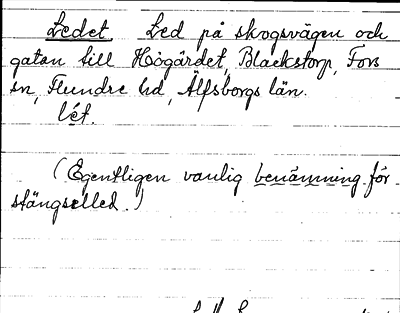 Ledet. Led på skogsvägen och
gatan till Högärdet, Blackstorp, Fors
sn, Flundre hd, Älfsborgs län.
lét.
(Egentligen vanlig benämning för
stängselled.)